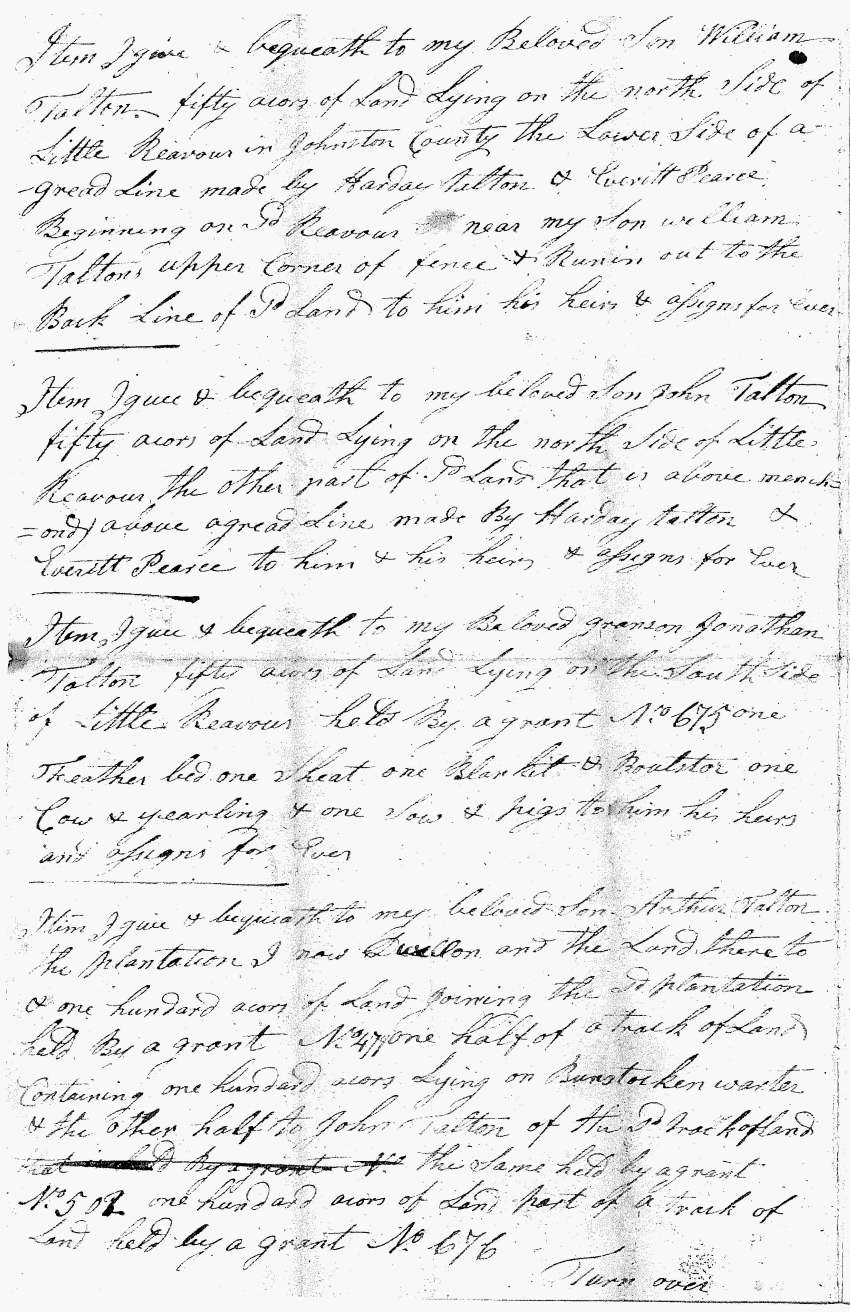 Item I give & bequeath to my Beloved Son William
Talton fifty acors of Land Lying on the north Side of
Little Reavour in Johnston County the Lower Side of a
gread Line made by Harday talton & Everitt Pearce
Beginning on Sd Reavour near my Son william
Taltons upper Corner of fence & Runin out to the
Back Line of Sd Land to him his heirs & assigns for Ever
Item I give & bequeath to my beloved Son John Talton
fifty acors of Land Lying on the north Side of Little
Reavour, the other part of Sd Land that is above mench=
=ond) avove agread Line made By Harday talton &
Everitt Pearce to him & his heirs & assigns for Ever
Item I give & bequeath to my Beloved granson Jonathan
Talton fifty acors of Land Lying on the South Side
of Little Reavour held By a grant No 675 one
Feather bed one Sheat one Blankit & Boulstor one
Cow & yearling & one Sow & pigs to him his heirs
and assigns for Ever
Item I give & bequeath to my beloved Son Arthur Talton
the plantation I now Dwell on and the Land there to
& one hundard acors of Land Joining the Sd plantation
held By a grant No 477 one half of a track of Land
Containing one hundard acors Lying on Bunstocken warter
& the other half to John Talton of the Sd track of land
that is held By a grant No the Same held by a grant
No 502 one hundard acors of Land part of a track of
Land held by a grant No 676
Turn over